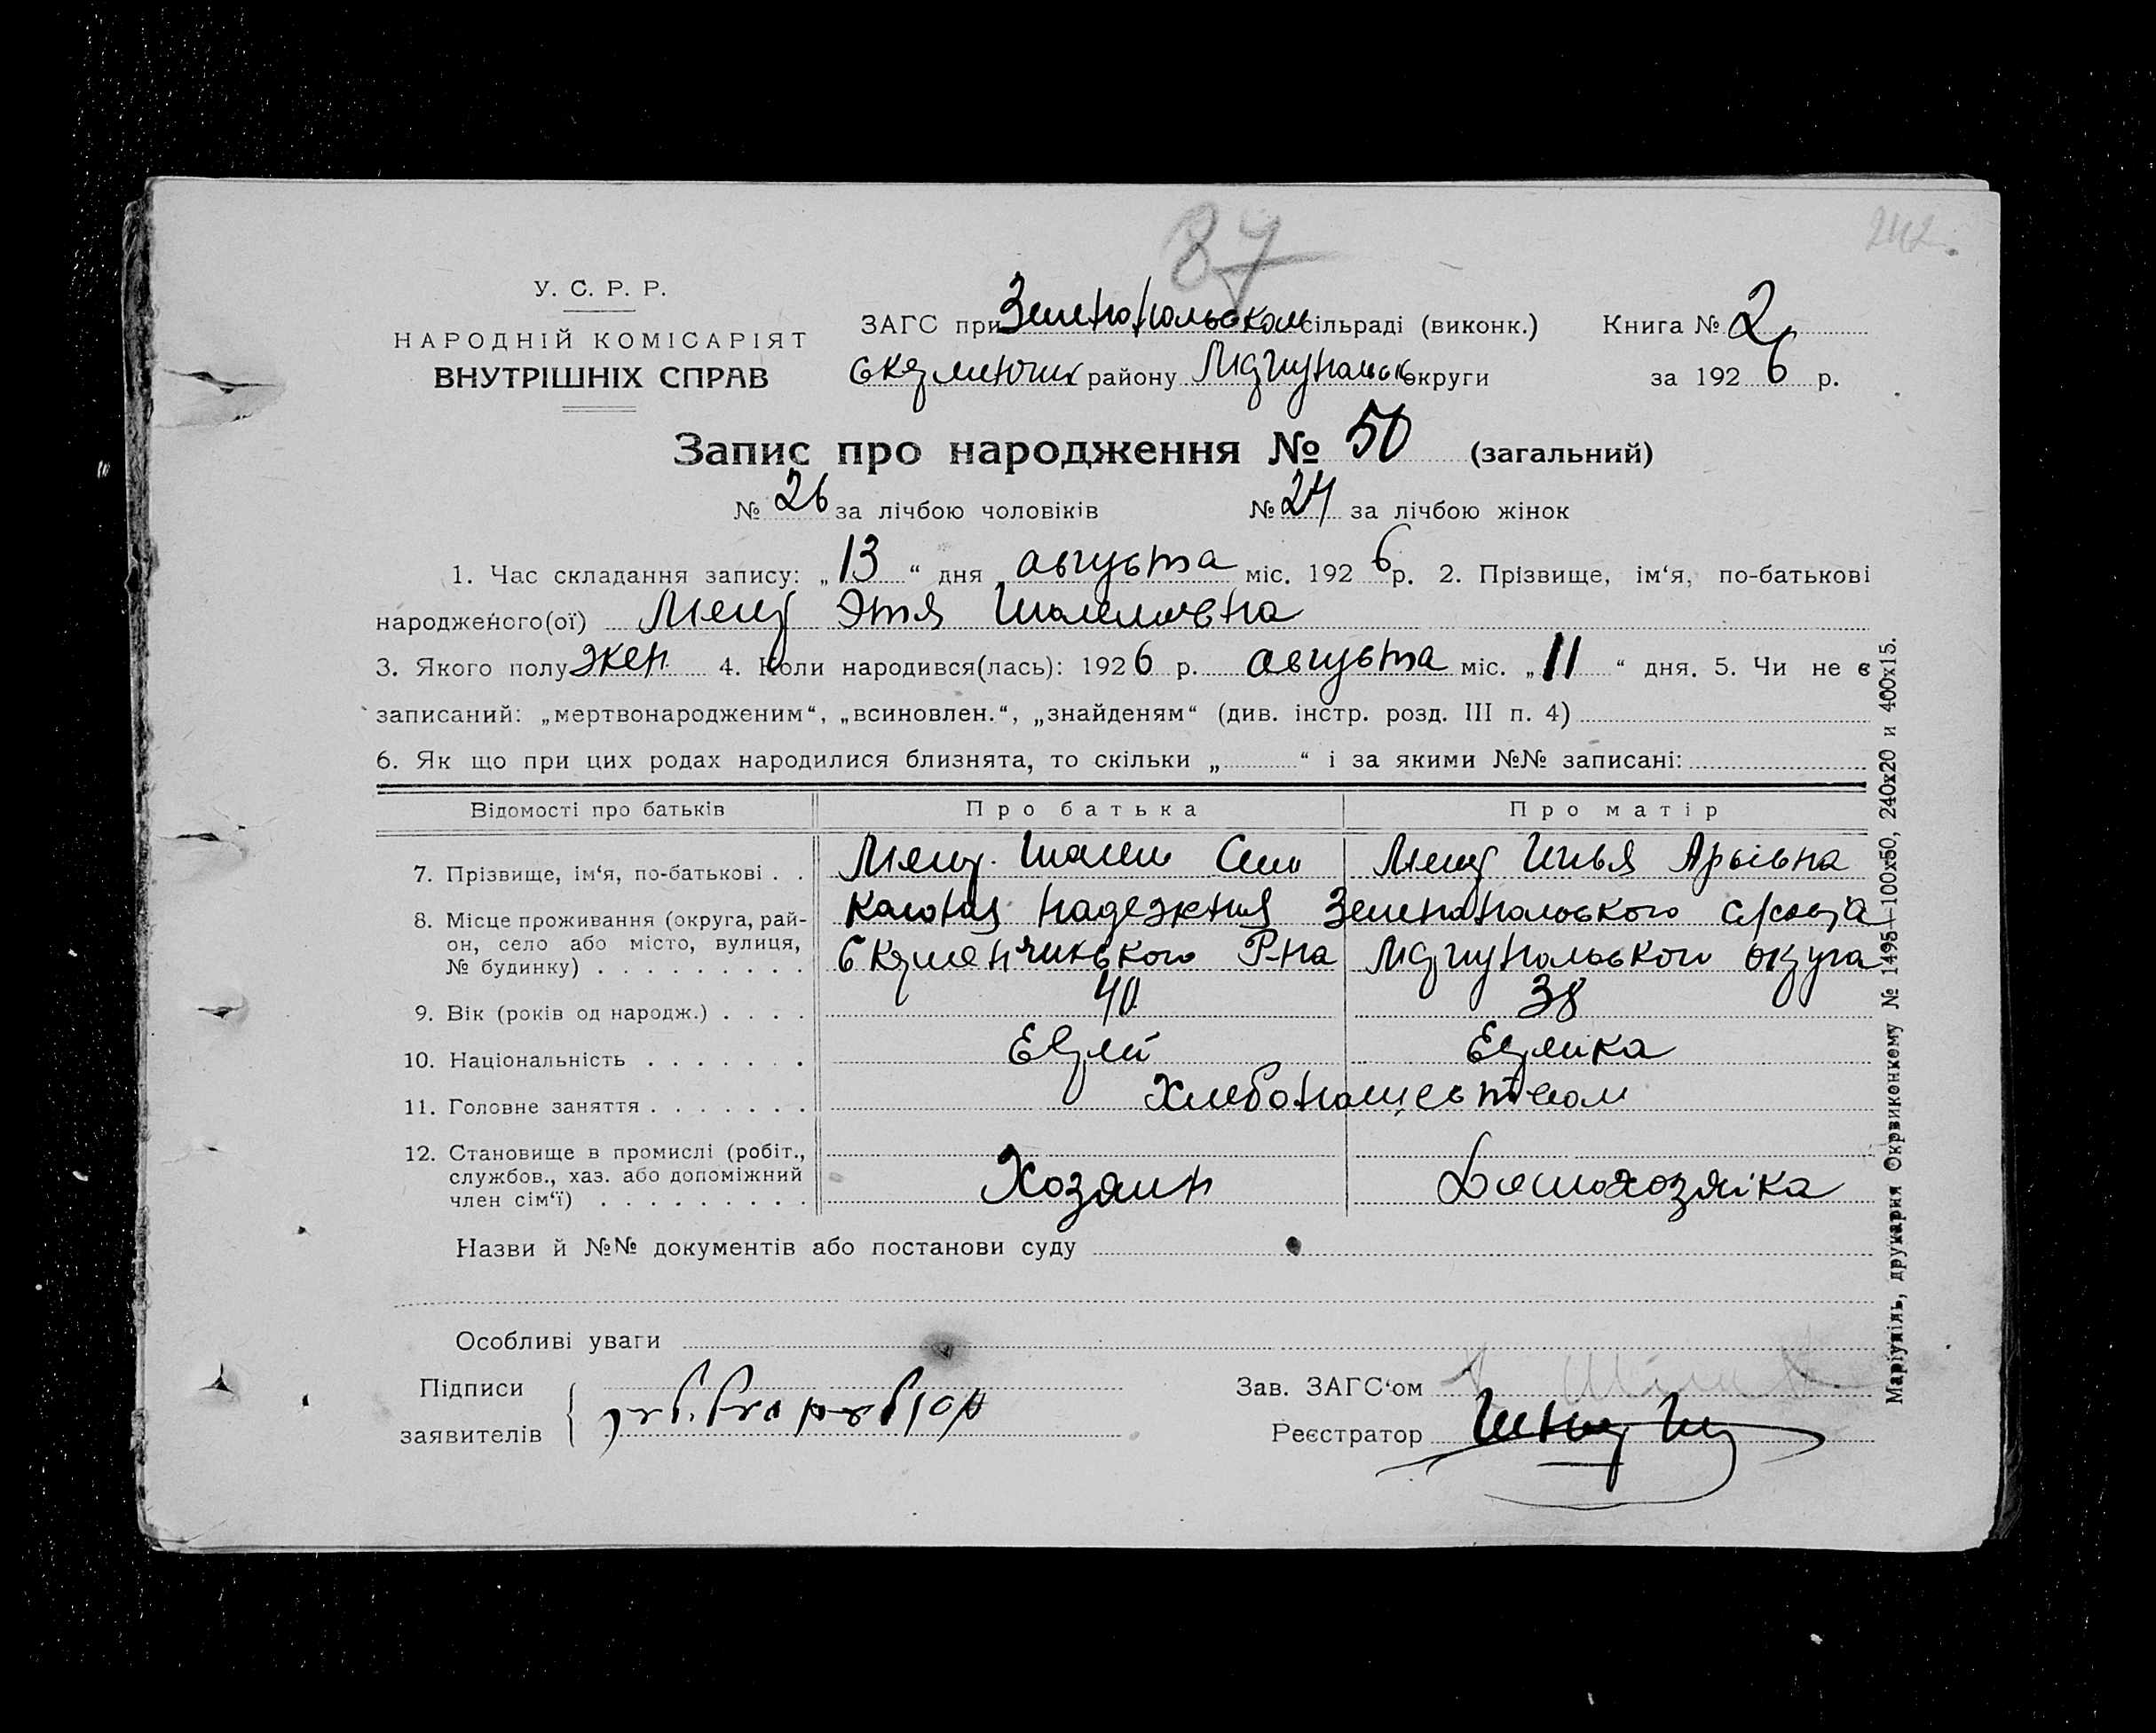 87
242.
У. С. Р. Р.
НАРОДНІЙ КОМІСАРІЯТ
ВНУТРІШНІХ СПРАВ
ЗАГС при Зеленопольском сільраді (виконк.)
району Мариупольск округи
Книга № 2
за 1926 р.
Запис про народження № 50 (загальний)
№ 26 за лічбою чоловіків № 24 за лічбою жінок
1. Час складання запису: „13“ дня августа міс. 1926 р. 2. Прізвище, ім‘я, по-батькові
народженого(ої) Мецг Этя
3. Якого полу жен. 4. Коли народився(лась): 1926 р. августа міс. „11“ дня. 5. Чи не є
записаний: „мертвонародженим“, „всиновлен.“, „знайденям“ (див. інстр. розд. III п. 4)
6. Як що при цих родах народилися близнята, то скільки „ “ і за якими №№ записані:
Відомості про батьків Про батька Про матір
7. Прізвище, ім‘я, по-батькові . . Мецг
8. Місце проживання (округа, рай-
он, село або місто, вулиця,
№ будинку) . . . . . . . . .
надежная Зеленопольского
Р-на Мариупольского округа
9. Вік (років од народж.) . . . . 40 38
10. Національність . . . . . . . Еврей Еврейка
11. Головне заняття . . . . . . . Хлебопашеством
12. Становище в промислі (робіт.,
службов., хаз. або допоміжний
член сім‘ї) . . . . . . . . .
Хозяин Домохозяйка
Назви й №№ документів або постанови суду
Особливі уваги
Підписи
заявителів
Зав. ЗАГС‘ом
Реєстратор
Маріупіль, друкарня Окрвиконкому № 1495—100х50, 240х20 и 400х15.